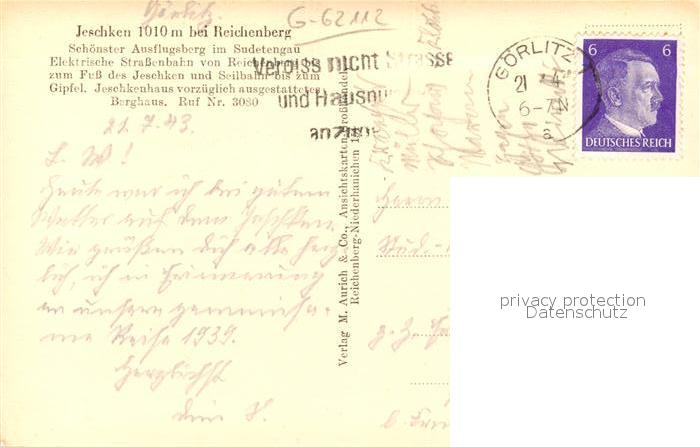 Görlitz.
G-62112
Jeschken 1010 m bei Reichenberg
Schönster Ausflugsberg im Sudetengau
Elektrische Straßenbahn von Reichenberg bis
zum Fuß des Jeschken und Seilbahn bis zum
Gipfel. Jeschkenhaus vorzüglich ausgestattetes
Berghaus. Ruf Nr. 3080
Vergiss nicht Strasse
und Hausnu
anzuge
GÖRLITZ
21 7 4
6-7 N
a
6 6
DEUTSCHES REICH
21.7.43.
L. W!
Heute war ich bei gutem
Wetter auf dem Jeschken.
Wir grüßen dich alle herz-
lich, ich in Erinnerung
an unsere gemeinsa-
me Reise 1939.
Herzlichst
dein
Verlag M. Aurich & Co., Ansichtskarten-Großhandel
Reichenberg-Niederhanichen
Herrn
Stud.-
privacy protection
Datenschutz